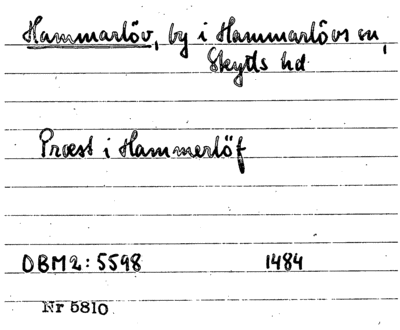 Hammarlöv, by i Hammarlövs sn,
Skytts hd
Præst i Hammerlöf
DBM2: 5598 1484
Nr 5810